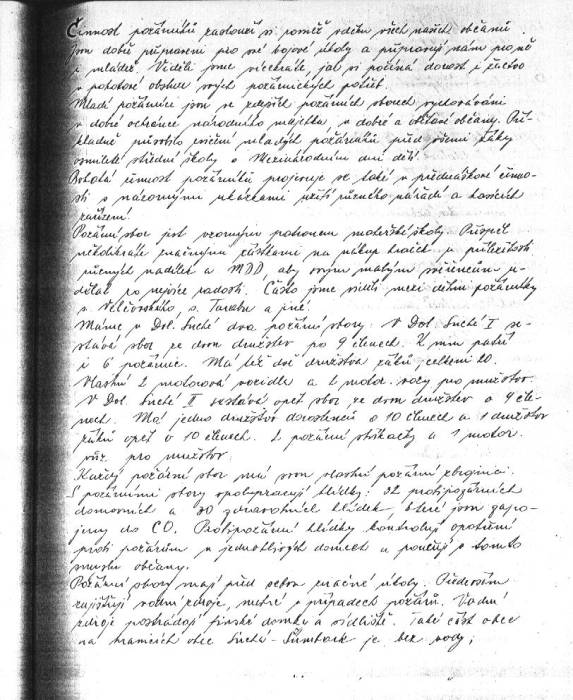 Činnost požárníků zaslouží si poměr vděku všech našich občanů.
Jsou dobře připraveni pro své bojové úkoly a připravují nám pro ně
i mládež. Viděli jsme několikráte, jak si počíná dorost i žactvo
v pohotové obsluze svých požárnických potřeb.
Mladí požárníci jsou ve zdejších požárních sborech vychováváni
v dobré ochránce národního majetku, v dobré a obětavé občany. Pří-
kladně působilo cvičení mladých požárníků před očima žáky
osmileté střední školy o Mezinárodním dni dětí.
Bohatá činnost požárníků projevuje se také v přednáškové činno-
sti s názornými ukázkami užití různého nářadí a hasících
zařízení.
Požární sbor jest vzorným patronem mateřské školy. Přispěl
několikráte značnými částkami na nákup hraček u příležitosti
různých nadílek a MDD, aby svým malým svěřencům u-
dělal co nejvíce radosti. Často jsme viděli mezi dětmi požárníky
s. Velčovského, s. Tarabu a jiné.
Máme v Dol. Suché dva požární sbory. V Dol. Suché I se-
stává sbor ze dvou družstev po 9 členech. K nim patří
i 6 požárnic. Má též dvě družstva žáků, celkem 20.
Vlastní 2 motorová vozidla a 2 motor. vozy pro mužstvo.
V Dol. Suché II sestává opět sbor ze dvou družstev o 9 čle-
nech. Má jedno družstvo dorostenců o 10 členech a 1 družstvo
žáků opět o 10 členech. 2 požární stříkačky a 1 motor.
vůz pro mužstvo.
Každý požární sbor má svou vlastní požární zbrojnici.
S požárními sbory spolupracují hlídky: 32 protipožárních
domovních a 30 zdravotních hlídek, které jsou zapo-
jeny do CO. Protipožární hlídky kontrolují opatření
proti požárům v jednotlivých domech a poučují v tomto
smyslu občany.
Požární sbory mají před sebou značné úkoly. Především
zajišťují vodní zdroje, nutné v případech požárů. Vodní
zdroje postrádají finské domky a sídliště. Také část obce
na hranicích obce Suchá-Šumbark je bez vody,